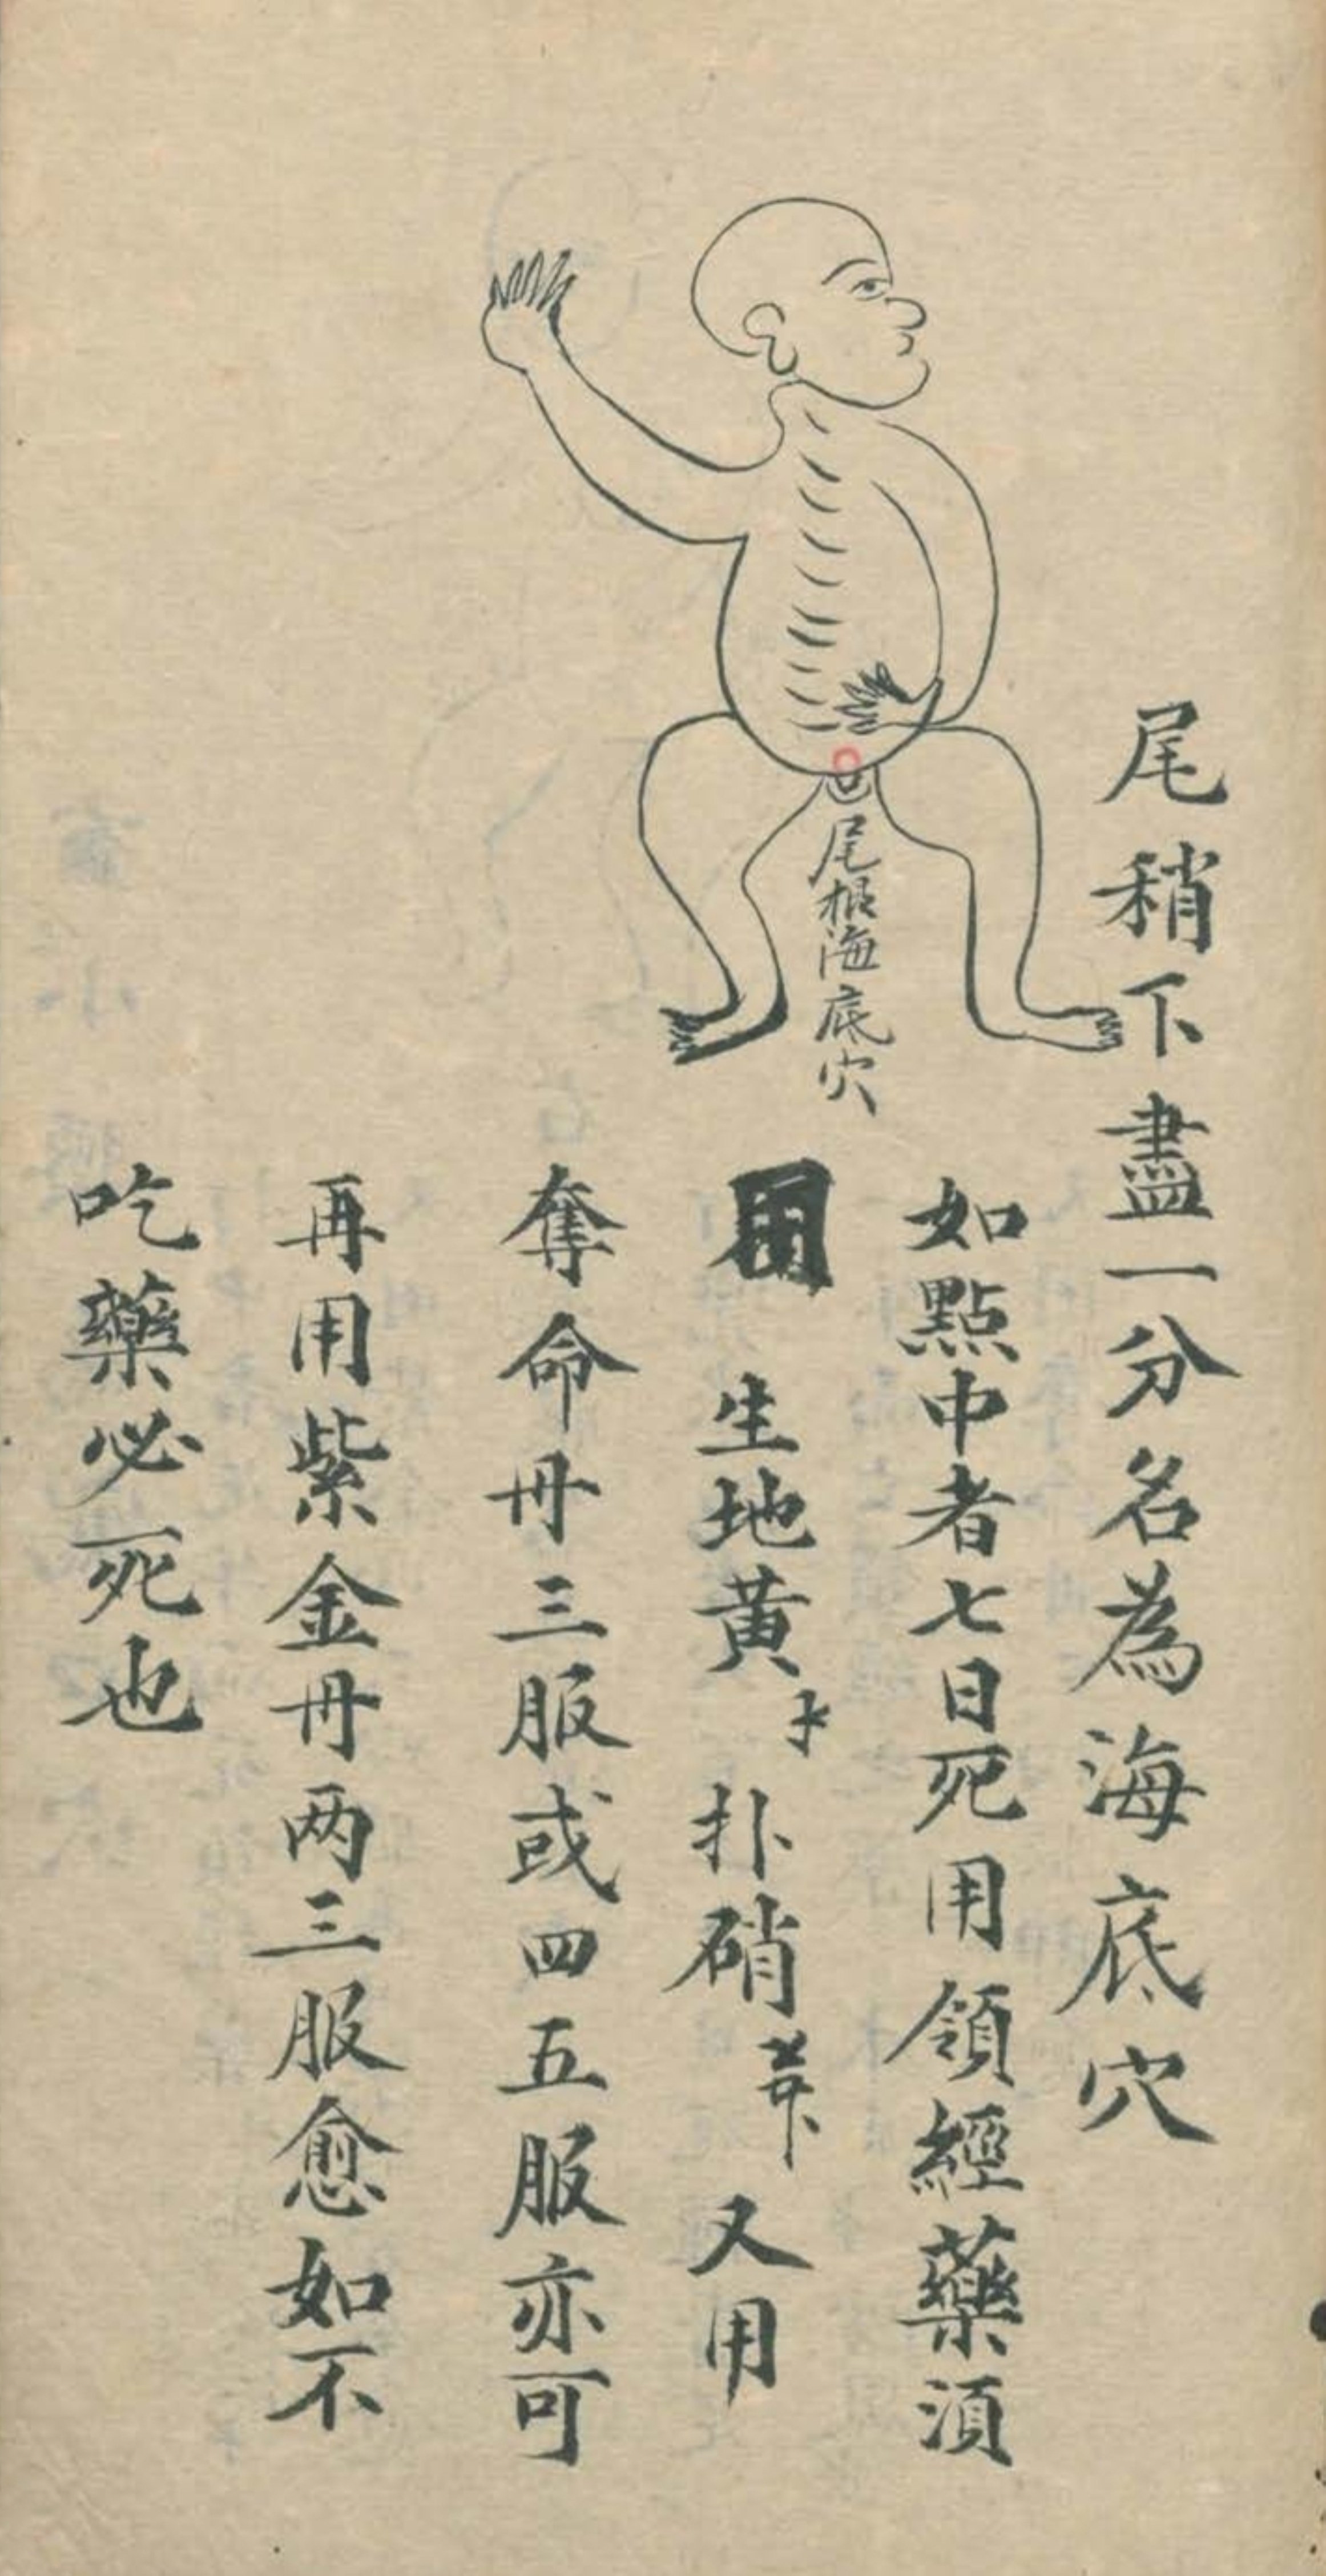 尾稍下盡一分名為海底穴
尾根海底穴
如點中者七日死用領經藥須
用 生地黃 扑硝 又用
奪命丹三服或四五服亦可
再用紫金丹两三服愈如不
吃藥必死也